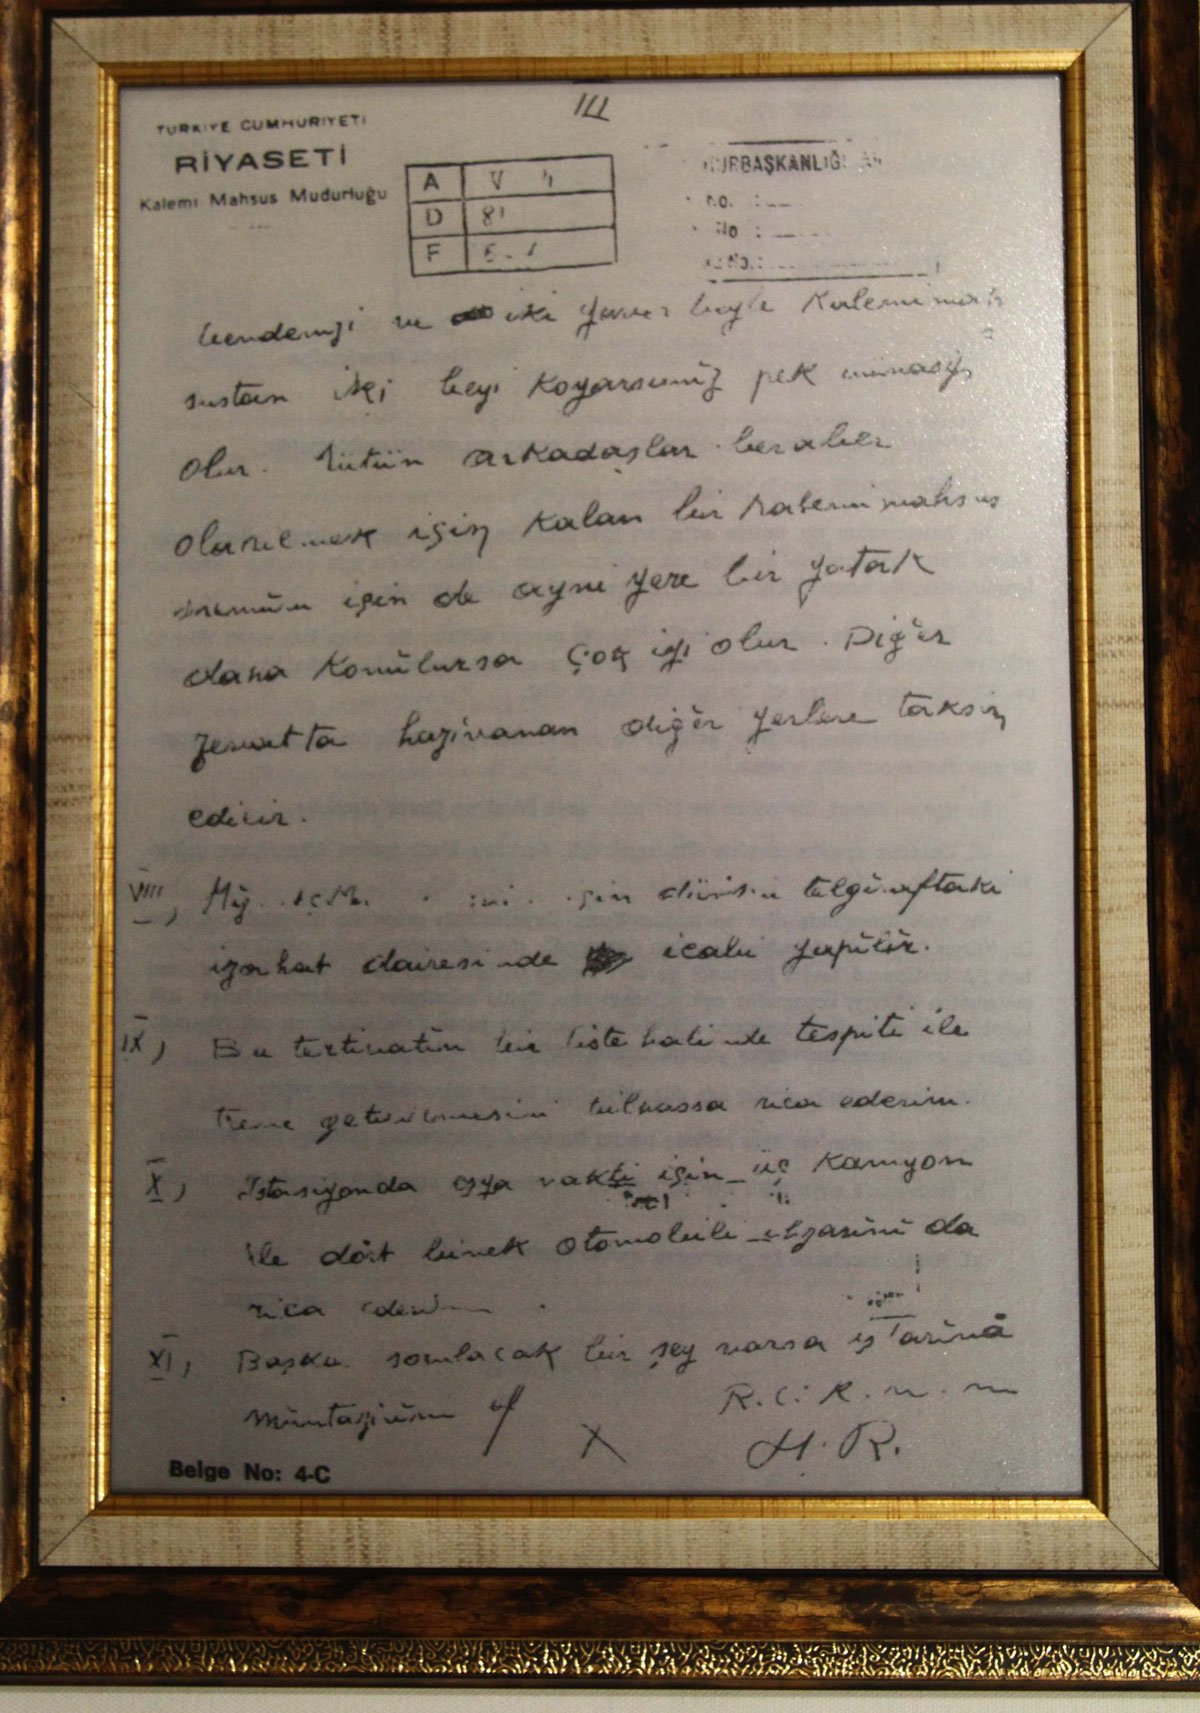 III
TÜRKİYE CUMHURİYETİ
RİYASETİ
Kalemi Mahsus Mudurluğu
A V 4
D 81
F
URBAŞKANLIĞI
No. :
No :
No. :
bendenizi ve iki yaver beyle Kalemi mah
sustan iki beyi koyarsanız pek münasip
olur. Bütün arkadaşlar beraber
olabilmek için kalan bir kalemi mahsus
için de ayni yere bir yatak
daha konulursa çok iyi olur. Diğer
zevatta hazirlanan diğer yerlere taksim
edilir.
VIII, için telgraftaki
izahat dairesinde icabi yapılır.
IX, Bu tertibatın bir liste halinde tespiti ile
trene getirilmesini bilhassa rica ederim.
X, İstasiyonda eşya nakli için üç kamyon
ile dört binek otomobili ihzarını da
rica ederim.
XI, Başka sorulacak bir şey varsa iş'arına
müntazirim
R.
H. R.
Belge No: 4-C